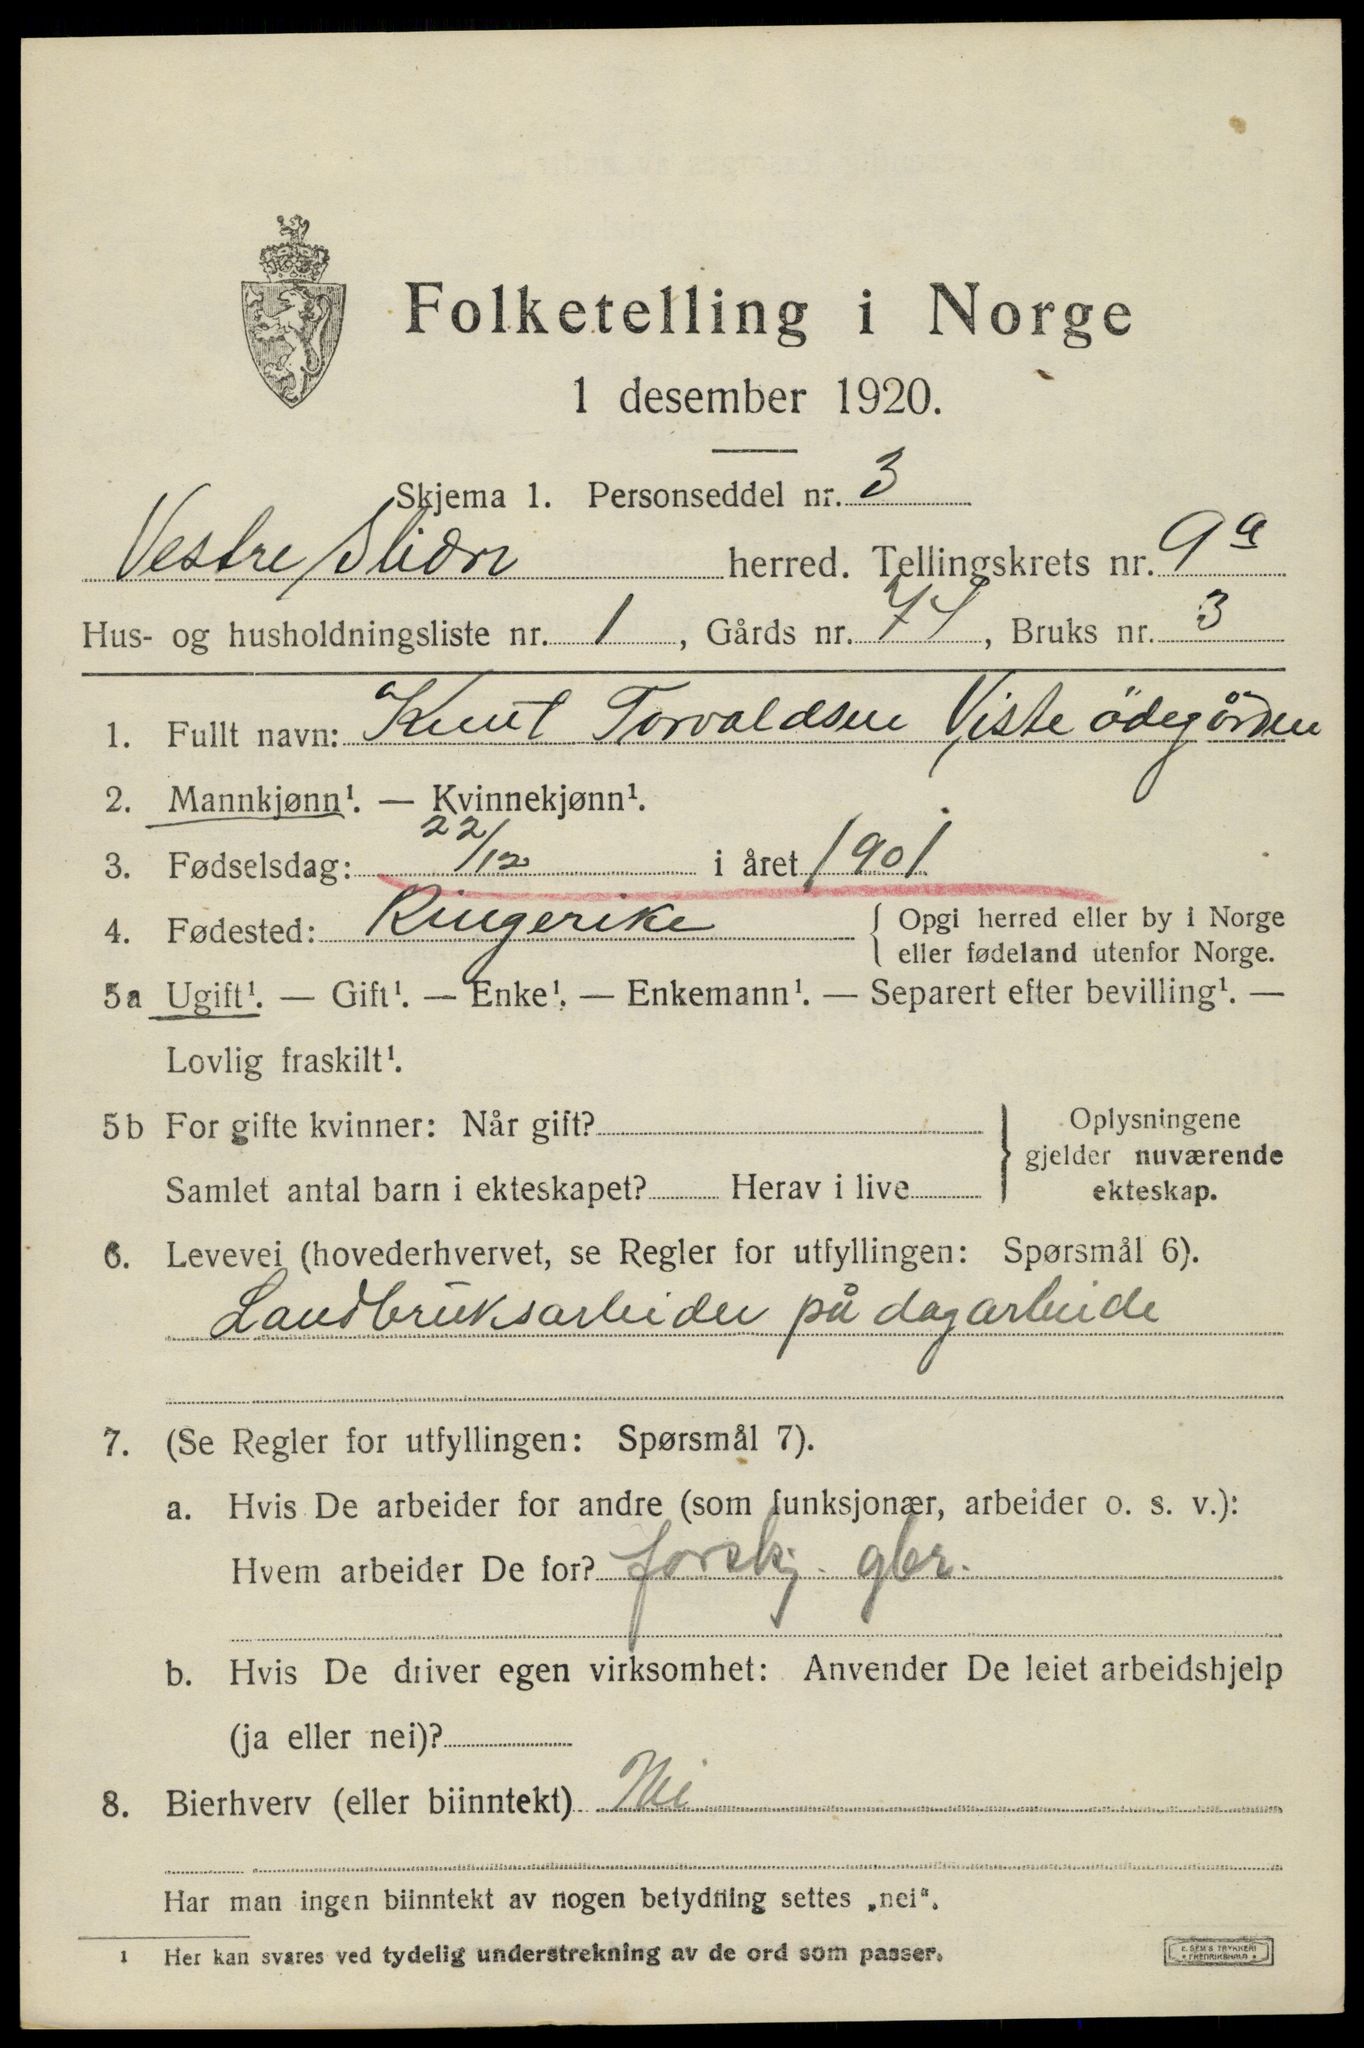 Folketelling i Norge
1 desember 1920.
Skjema 1. Personseddel nr. 3
Vestre Slidre herred. Tellingskrets nr. 9a
Hus- og husholdningsliste nr. 1, Gårds nr. 77, Bruks nr. 3
1. Fullt navn: Knut Torvaldsen Viste ödegården
2. Mannkjønn¹. — Kvinnekjønn¹.
3. Fødselsdag: 22/12 i året 1901
4. Fødested: Ringerike { Opgi herred eller by i Norge
eller fødeland utenfor Norge.
5a Ugift¹. — Gift¹. — Enke¹. — Enkemann¹. — Separert efter bevilling¹. —
Lovlig fraskilt¹.
5b For gifte kvinner: Når gift?
Samlet antal barn i ekteskapet? Herav i live
} Oplysningene
gjelder nuværende
ekteskap.
6. Levevei (hovederhvervet, se Regler for utfyllingen: Spørsmål 6).
Landbruksarbeider på dagarbeide
7. (Se Regler for utfyllingen: Spørsmål 7).
a. Hvis De arbeider for andre (som funksjonær, arbeider o. s. v.):
Hvem arbeider De for? forskj. gbr.
b. Hvis De driver egen virksomhet: Anvender De leiet arbeidshjelp
(ja eller nei)?
8. Bierhverv (eller biinntekt) Nei
Har man ingen biinntekt av nogen betydning settes „nei“.
1 Her kan svares ved tydelig understrekning av de ord som passer.
E. SEM'S TRYKKERI
FREDRIKSHALD